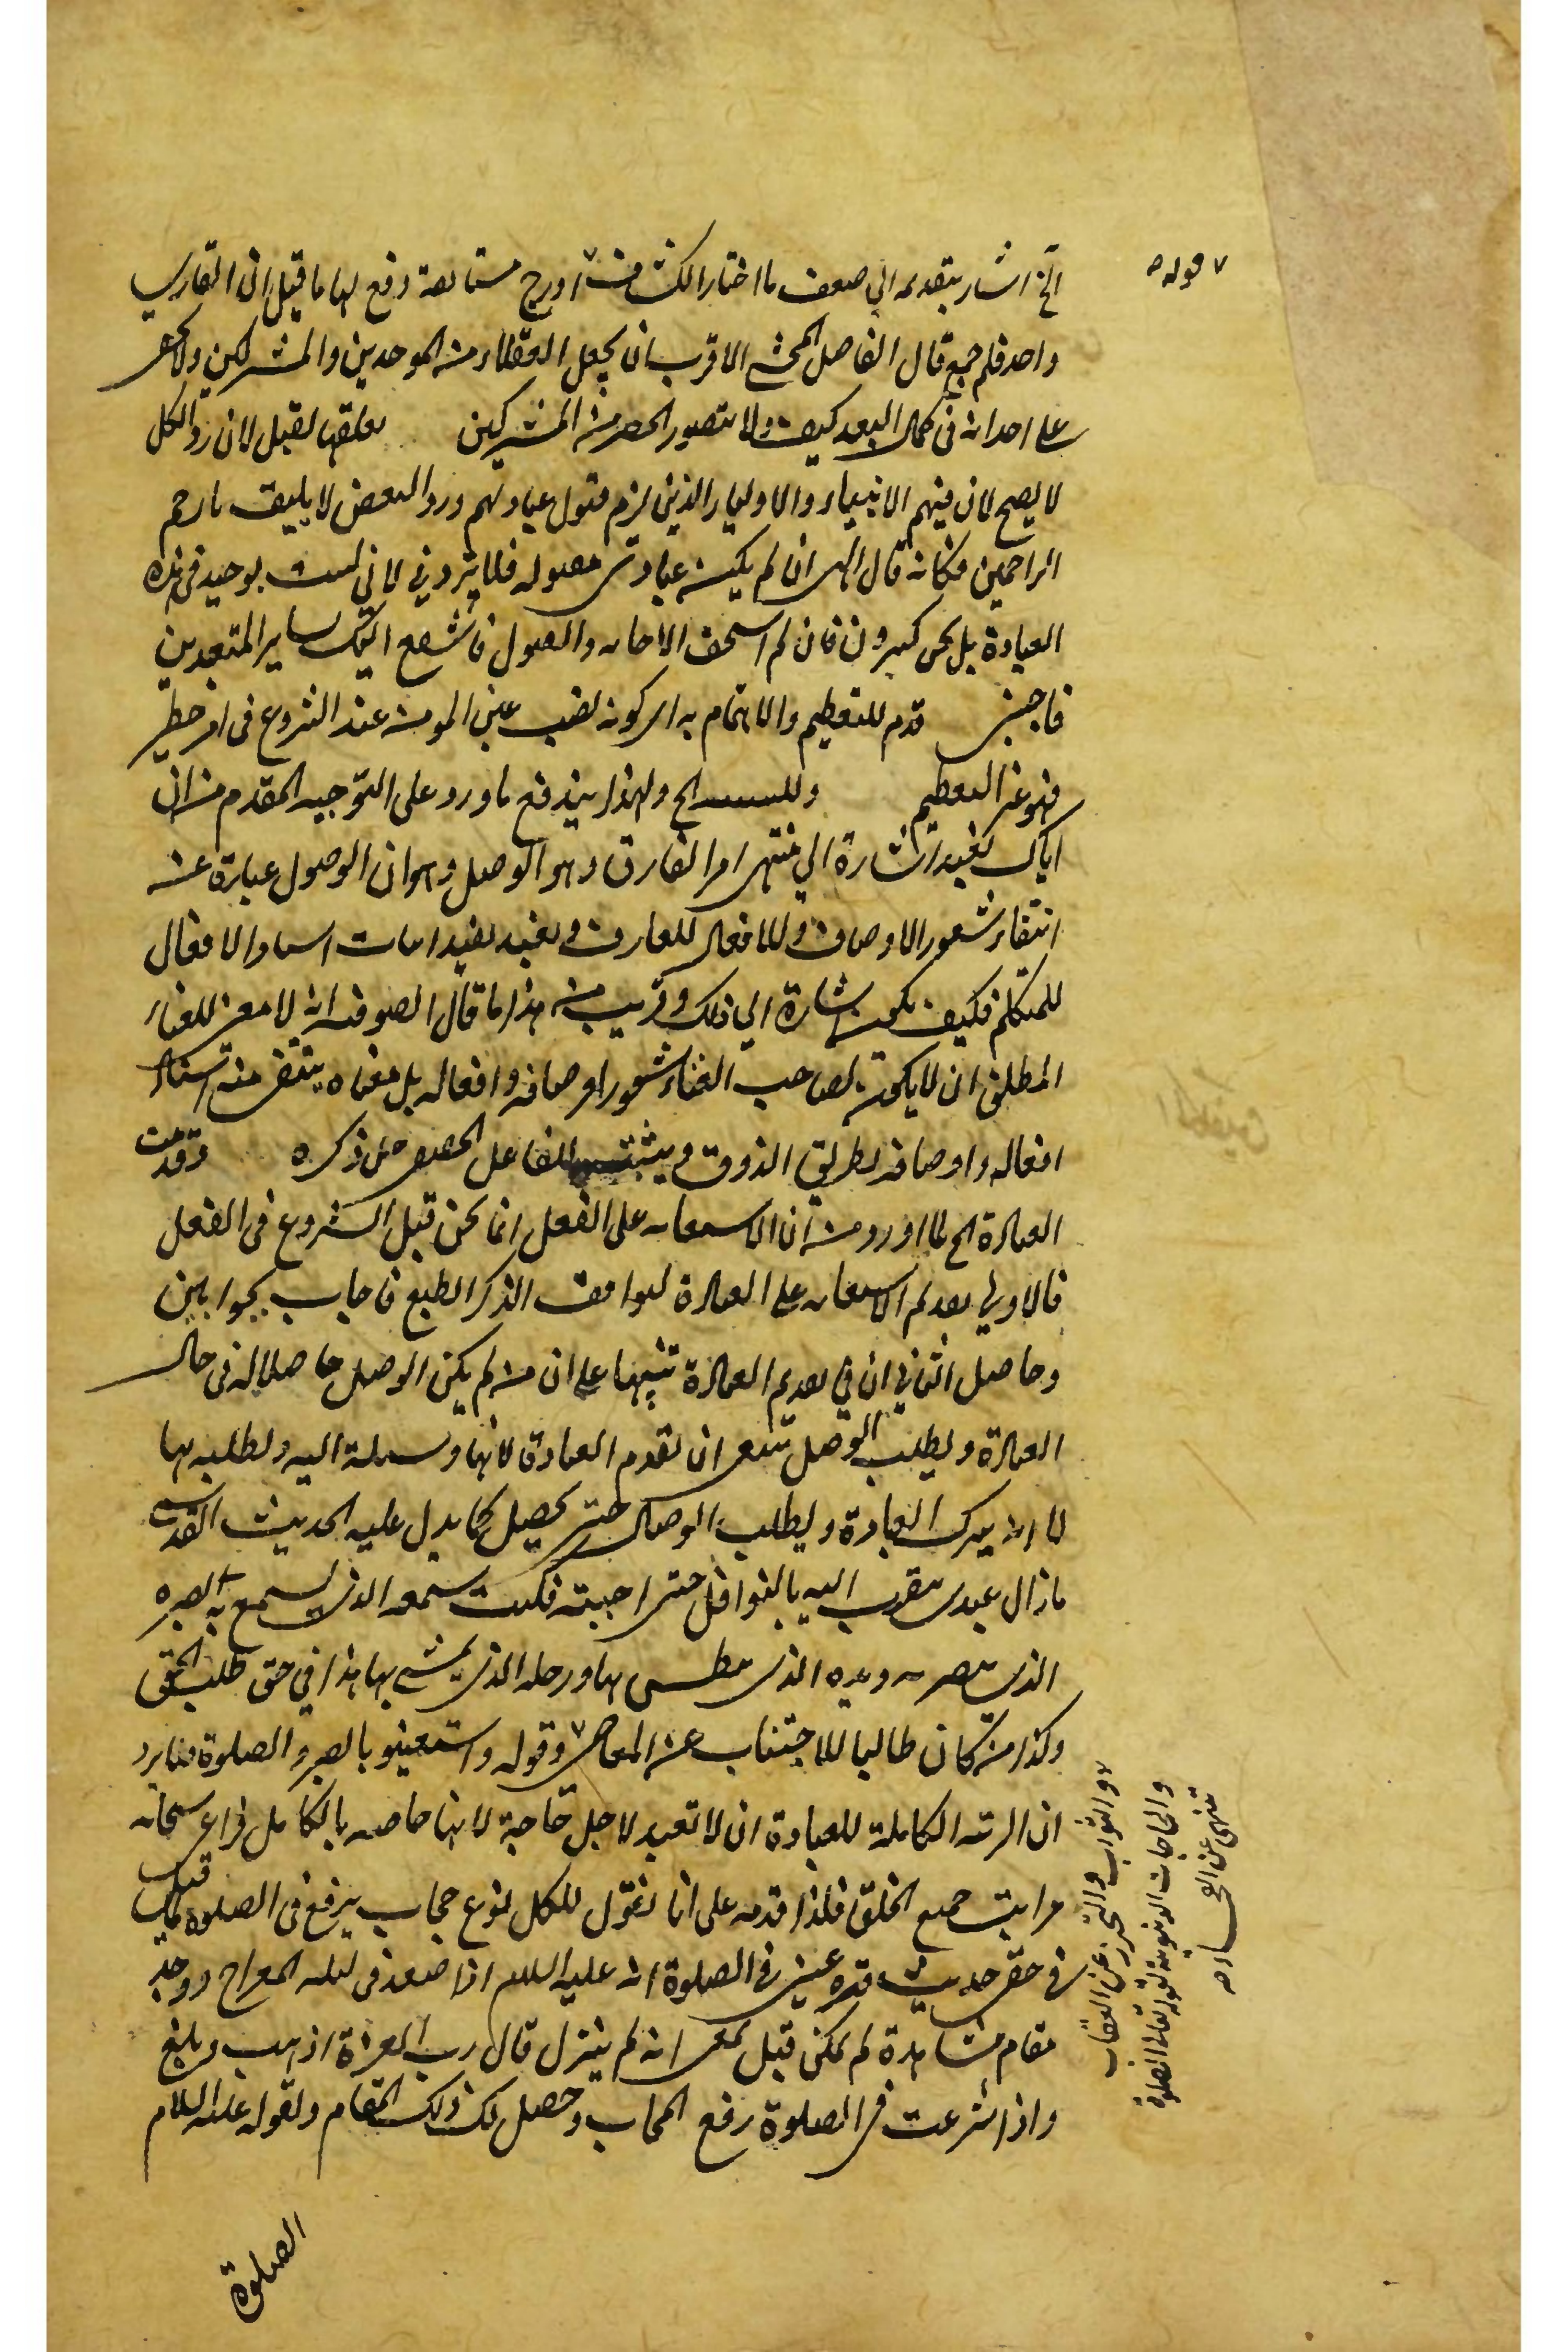 الخ اشار بتقديمه الى ضعف ما اختار الكشاف ادرج دفع لها ما قيل ان القارى
واحد فلم جمع قال الفاضل المحشى الاقرب ان يجعل العقلاء من الموحدين والمشركين ولا يخفى
على احد انه فى كمال البعد كيف ولا يتصور الحصر من المشركين لعلها تقبل لان رد الكل
لا يصح لان فيهم الانبياء والاولياء الذين لزم قبول عبادتهم ورد البعض لا يليق بارحم
الراحمين فكانه قال الهى ان لم يكن عبادتى مقبوله فلا تردنى لانى لست بوحيد فى هذه
العبادة بل نحن كثيرون فان لم استحق الاجابه والقبول فاشفع اليك بساير المتعبدين
فاجبنى قدم للتعظيم والاهتمام به اى كونه نصب عين المومن عند الشروع فى امر خطير
فهو غير التعظيم وللتنبيه الخ ولهذا يندفع ما ورد على التوجيه المقدم من ان
اياك نعبد اشارة الى منتهى امر العارف وهو الوصل وهو ان الوصول عبارة عن
انتفاء شعور الاوصاف والافعال للعارف ونعبد يفيد اثبات اسناد الافعال
للمتكلم فكيف يكون اشارة الى ذلك وقريب من هذا ما قال الصوفيه انه لا معنى للفناء
المطلق ان لا يكون لصاحب الفناء شعور اوصافه وافعاله بل معناه ينتفى منه اسناد
افعاله واوصافه بطريق الذوق ويثبت للفاعل الحقيقى جل ذكره وقدمت
العبادة الخ لما اورد من ان الاستعانه على الفعل انما يكون قبل الشروع فى الفعل
فالاولى تقديم الاستعانه على العبادة ليوافق الذكر الطبع فاجاب بجوابين
وحاصل الثانى ان فى تقديم العبادة تنبيها على ان من لم يكن الوصل حاصلا له فى حال
العبادة ويطلب الوصل ينبغى ان يقدم العبادة لانها وسيلة اليه ويطلبه بها
لا انه يترك العبادة ويطلب الوصال حتى يحصل كما يدل عليه الحديث القدسى
ما زال عبدى يتقرب اليه بالنوافل حتى احببته فكنت سمعه الذى يسمع به وبصره
الذى يبصر به ويده الذى يبطش بها ورجله الذى يمشى بها هذا فى حق طلب الحق
وكذا من كان طالبا للاجتناب عن المعاصى وقوله واستعينوا بالصبر والصلوة فما يرد
ان المرتبه الكاملة للعبادة ان لا تعبد لاجل حاجة لانها خاصه بالكامل فراعى سبحانه
مراتب جميع الخلق فلذا قدمه على انا نقول للكل نوع حجاب يرفع فى الصلوة كما قيل
فى حق حديث قرة عينى فى الصلوة انه عليه السلام اذا صعد فى ليلة المعراج ووجد
مقام مشاهدة لم يكن قبل تمنى انه لم ينزل قال رب العزة اذهب وبلغ
واذا شرعت فى الصلوة رفع الحجاب وحصل لك ذلك المقام ولقوله عليه السلام
الصلوة
قوله
والثواب والتحرز عن العقاب
والحاجات الدنيوية لقوله تعالى ان الصلوة
تنهى عن الفحشاء